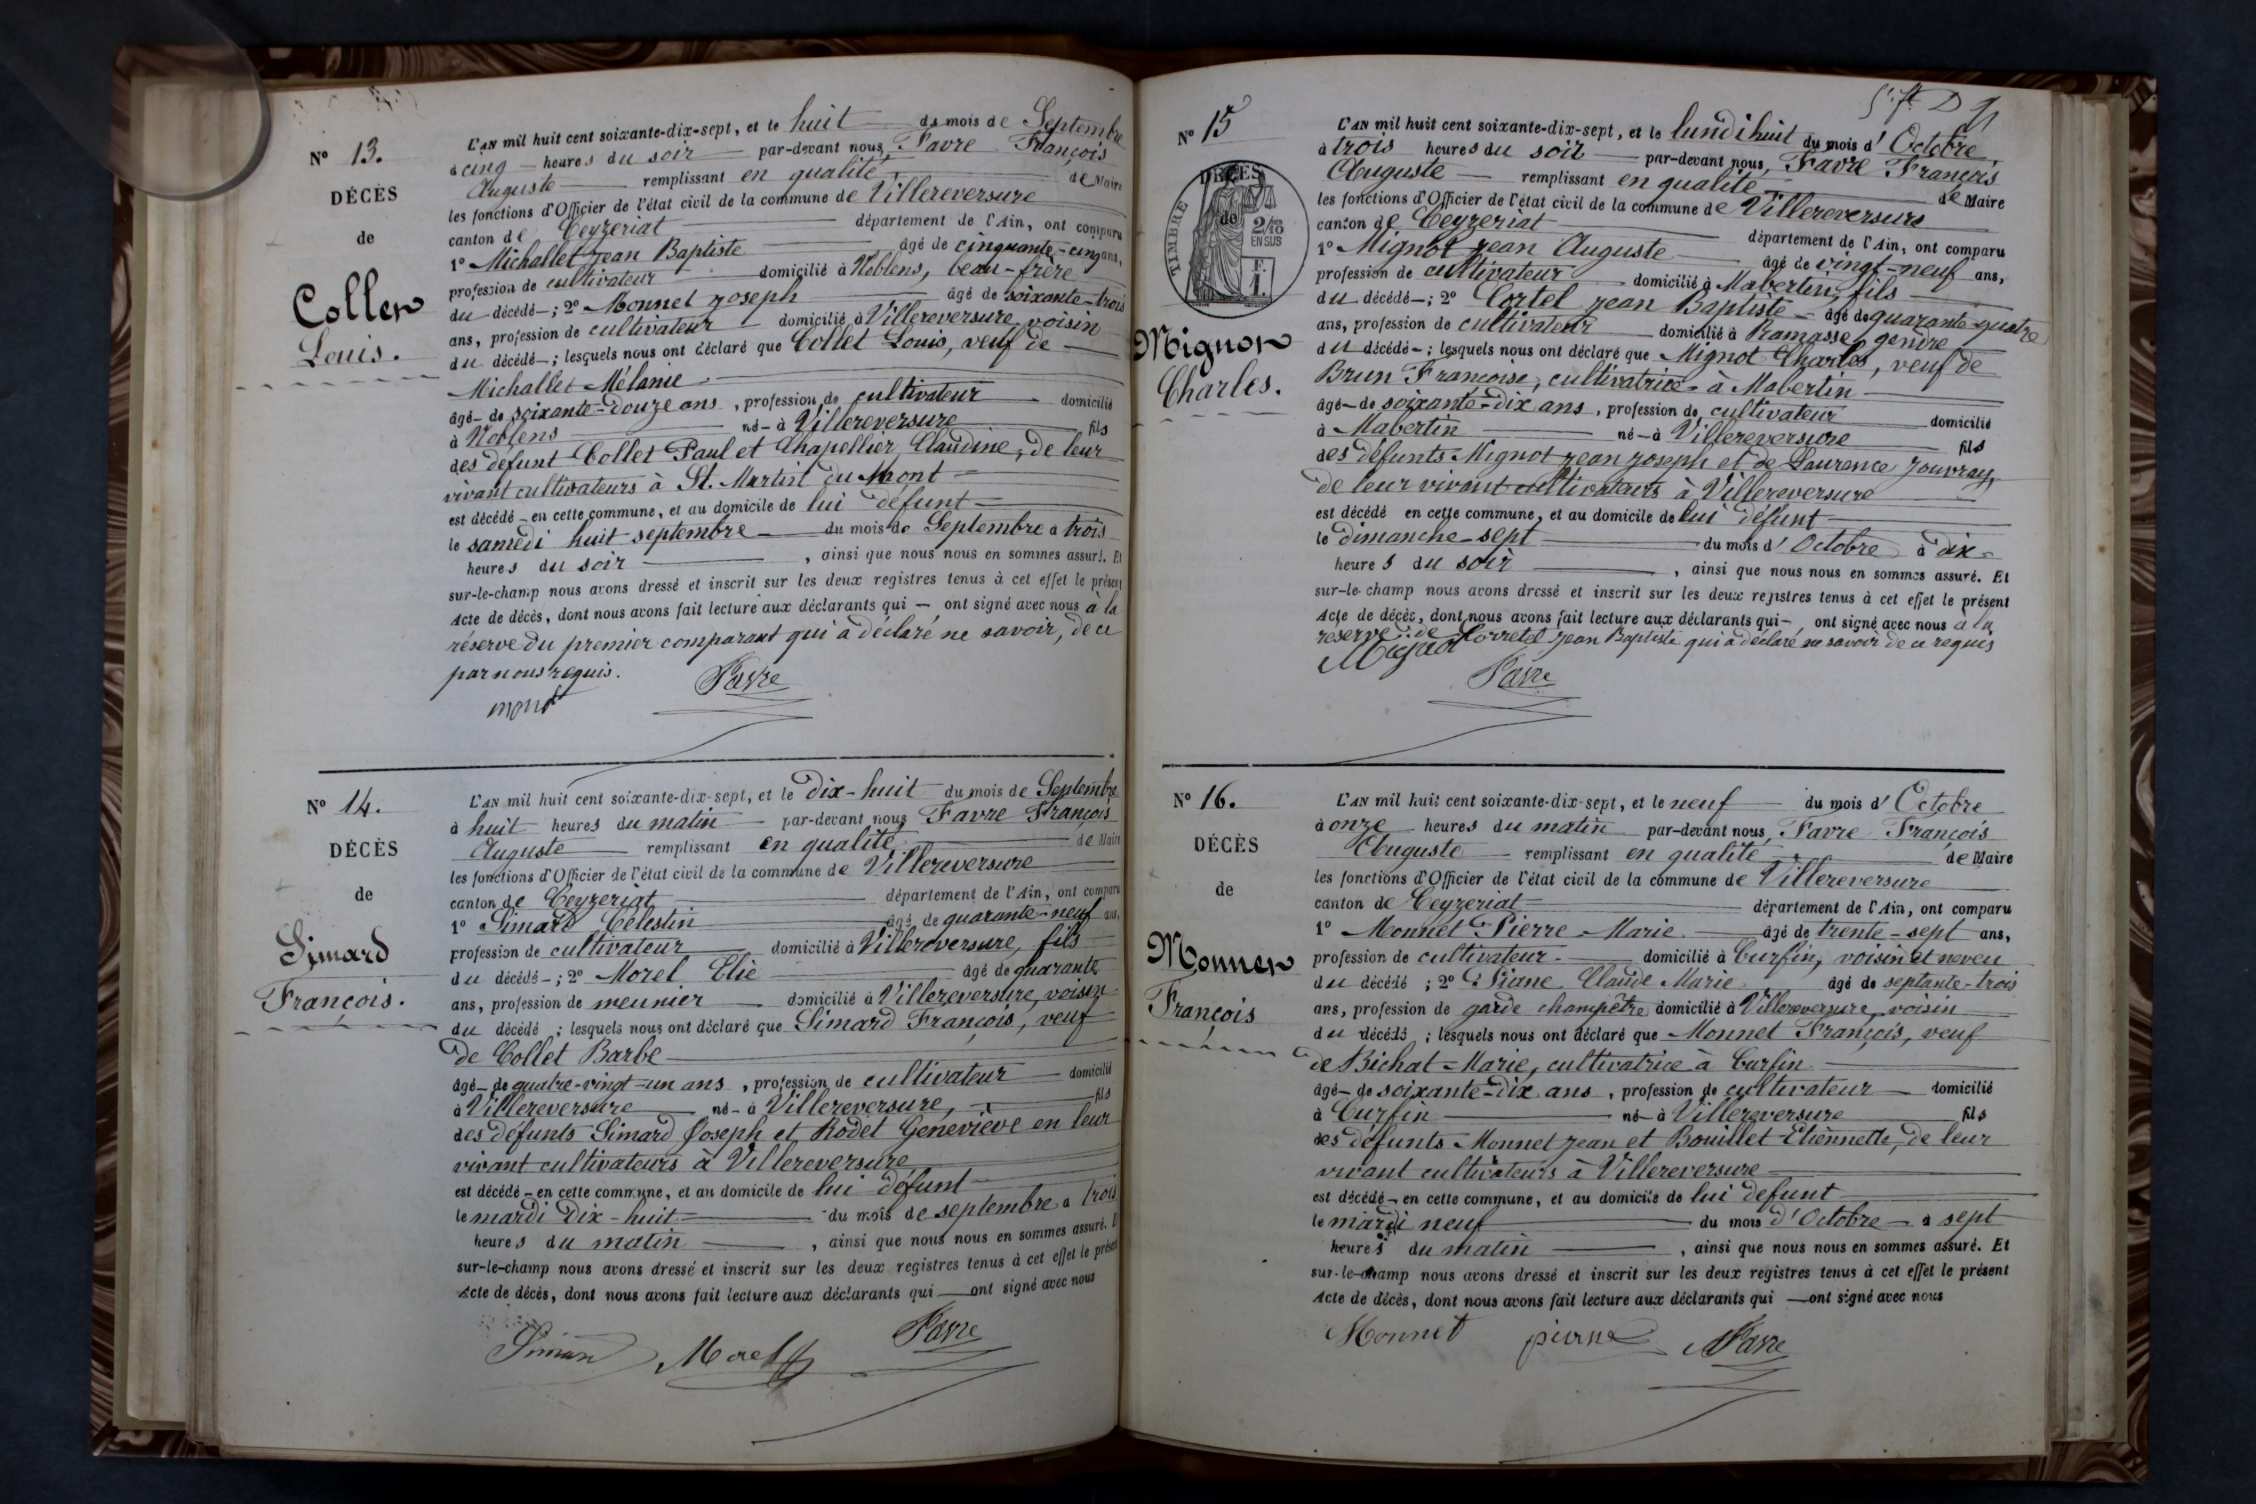 N° 13.
DÉCÈS
de
Collet
Louis.
L'AN mil huit cent soixante-dix-sept, et le huit du mois de Septembre
à cinq heures du soir par-devant nous, Favre François
Auguste remplissant en qualité de Maire
les fonctions d'Officier de l'état civil de la commune de Villereversure
canton de Ceyzeriat département de l'Ain, ont comparu
1° Michallet Jean Baptiste âgé de cinquante-cinq ans,
profession de cultivateur domicilié à Noblens, beau-frère
du décédé ; 2° Monnet Joseph âgé de soixante-trois
ans, profession de cultivateur domicilié à Villereversure, voisin
du décédé ; lesquels nous ont déclaré que Collet Louis, veuf de
Michallet Mélanie
âgé de soixante-douze ans, profession de cultivateur domicilié
à Noblens né à Villereversure fils
des défunt Collet Paul et Chapellier Claudine, de leur
vivant cultivateurs à St. Martin du Mont
est décédé en cette commune, et au domicile de lui défunt
le samedi huit septembre du mois de Septembre à trois
heures du soir, ainsi que nous nous en sommes assuré. Et
sur-le-champ nous avons dressé et inscrit sur les deux registres tenus à cet effet le présent
Acte de décès, dont nous avons fait lecture aux déclarants qui ont signé avec nous à la
réserve du premier comparant qui a déclaré ne savoir, de ce
par nous requis.
Favre
N° 14.
DÉCÈS
de
Simard
François.
L'AN mil huit cent soixante-dix-sept, et le dix-huit du mois de Septembre
à huit heures du matin par-devant nous, Favre François
Auguste remplissant en qualité de Maire
les fonctions d'Officier de l'état civil de la commune de Villereversure
canton de Ceyzeriat département de l'Ain, ont comparu
1° Simard Célestin âgé de quarante-neuf ans,
profession de cultivateur domicilié à Villereversure, fils
du décédé ; 2° Morel Elie âgé de quarante
ans, profession de meunier domicilié à Villereversure, voisin
du décédé ; lesquels nous ont déclaré que Simard François, veuf
de Collet Barbe
âgé de quatre-vingt-un ans, profession de cultivateur domicilié
à Villereversure né à Villereversure, fils
des défunts Simard Joseph et Rodet Geneviève en leur
vivant cultivateurs à Villereversure
est décédé en cette commune, et au domicile de lui défunt
le mardi dix-huit du mois de septembre à trois
heures du matin, ainsi que nous nous en sommes assuré. Et
sur-le-champ nous avons dressé et inscrit sur les deux registres tenus à cet effet le présent
Acte de décès, dont nous avons fait lecture aux déclarants qui ont signé avec nous
Favre
Simard Morel
N° 15
DÉCÈS
TIMBRE
de
2/10
EN SUS
Mignot
Charles.
L'AN mil huit cent soixante-dix-sept, et le lundi huit du mois d'Octobre,
à trois heures du soir par-devant nous, Favre François
Auguste remplissant en qualité de Maire
les fonctions d'Officier de l'état civil de la commune de Villereversure
canton de Ceyzeriat département de l'Ain, ont comparu
1° Mignot Jean Auguste âgé de vingt-neuf ans,
profession de cultivateur domicilié à Mabertin, fils
du décédé ; 2° Cortel Jean Baptiste âgé de quarante-quatre
ans, profession de cultivateur domicilié à Ramasse, gendre
du décédé ; lesquels nous ont déclaré que Mignot Charles, veuf de
Brun Françoise, cultivatrice à Mabertin
âgé de soixante-dix ans, profession de cultivateur domicilié
à Mabertin né à Villereversure fils
des défunts Mignot Jean Joseph et de Laurence Jouvray,
de leur vivant cultivateurs à Villereversure
est décédé en cette commune, et au domicile de lui défunt
le dimanche sept du mois d'Octobre à dix
heures du soir, ainsi que nous nous en sommes assuré. Et
sur-le-champ nous avons dressé et inscrit sur les deux registres tenus à cet effet le présent
Acte de décès, dont nous avons fait lecture aux déclarants qui ont signé avec nous à la
réserve de Corretel Jean Baptiste qui a déclaré ne savoir de ce requis
Mignot
Favre
N° 16.
DÉCÈS
de
Monnet
François
L'AN mil huit cent soixante-dix-sept, et le neuf du mois d'Octobre
à onze heures du matin par-devant nous, Favre François
Auguste remplissant en qualité de Maire
les fonctions d'Officier de l'état civil de la commune de Villereversure
canton de Ceyzeriat département de l'Ain, ont comparu
1° Monnet Pierre Marie âgé de trente-sept ans,
profession de cultivateur domicilié à Curfin, voisin et neveu
du décédé ; 2° Piane Claude Marie âgé de septante-trois
ans, profession de garde champêtre domicilié à Villereversure, voisin
du décédé ; lesquels nous ont déclaré que Monnet François, veuf
de Bichat Marie, cultivatrice à Curfin
âgé de soixante-dix ans, profession de cultivateur domicilié
à Curfin né à Villereversure fils
des défunts Monnet Jean et Bouillet Etiennette, de leur
vivant cultivateurs à Villereversure
est décédé en cette commune, et au domicile de lui défunt
le mardi neuf du mois d'Octobre à sept
heures du matin, ainsi que nous nous en sommes assuré. Et
sur-le-champ nous avons dressé et inscrit sur les deux registres tenus à cet effet le présent
Acte de décès, dont nous avons fait lecture aux déclarants qui ont signé avec nous
Monnet Favre